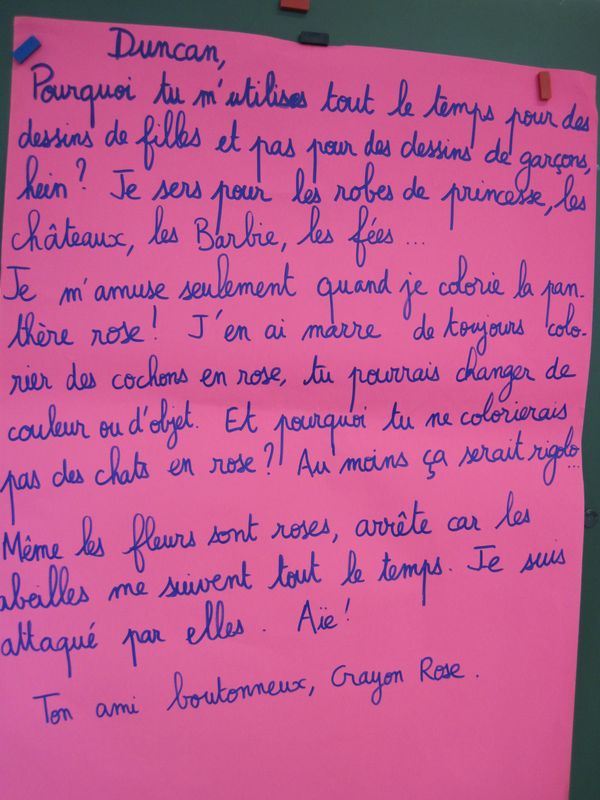 Duncan,
Pourquoi tu m'utilises tout le temps pour des
dessins de filles et pas pour des dessins de garçons,
hein? Je sers pour les robes de princesse, les
châteaux, les Barbie, les fées ...
Je m'amuse seulement quand je colorie la pan-
thère rose! J'en ai marre de toujours colo-
rier des cochons en rose, tu pourrais changer de
couleur ou d'objet. Et pourquoi tu ne colorierais
pas des chats en rose? Au moins ça serait rigolo...
Même les fleurs sont roses, arrête car les
abeilles me suivent tout le temps. Je suis
attaqué par elles. Aïe!
Ton ami boutonneux, Crayon Rose.